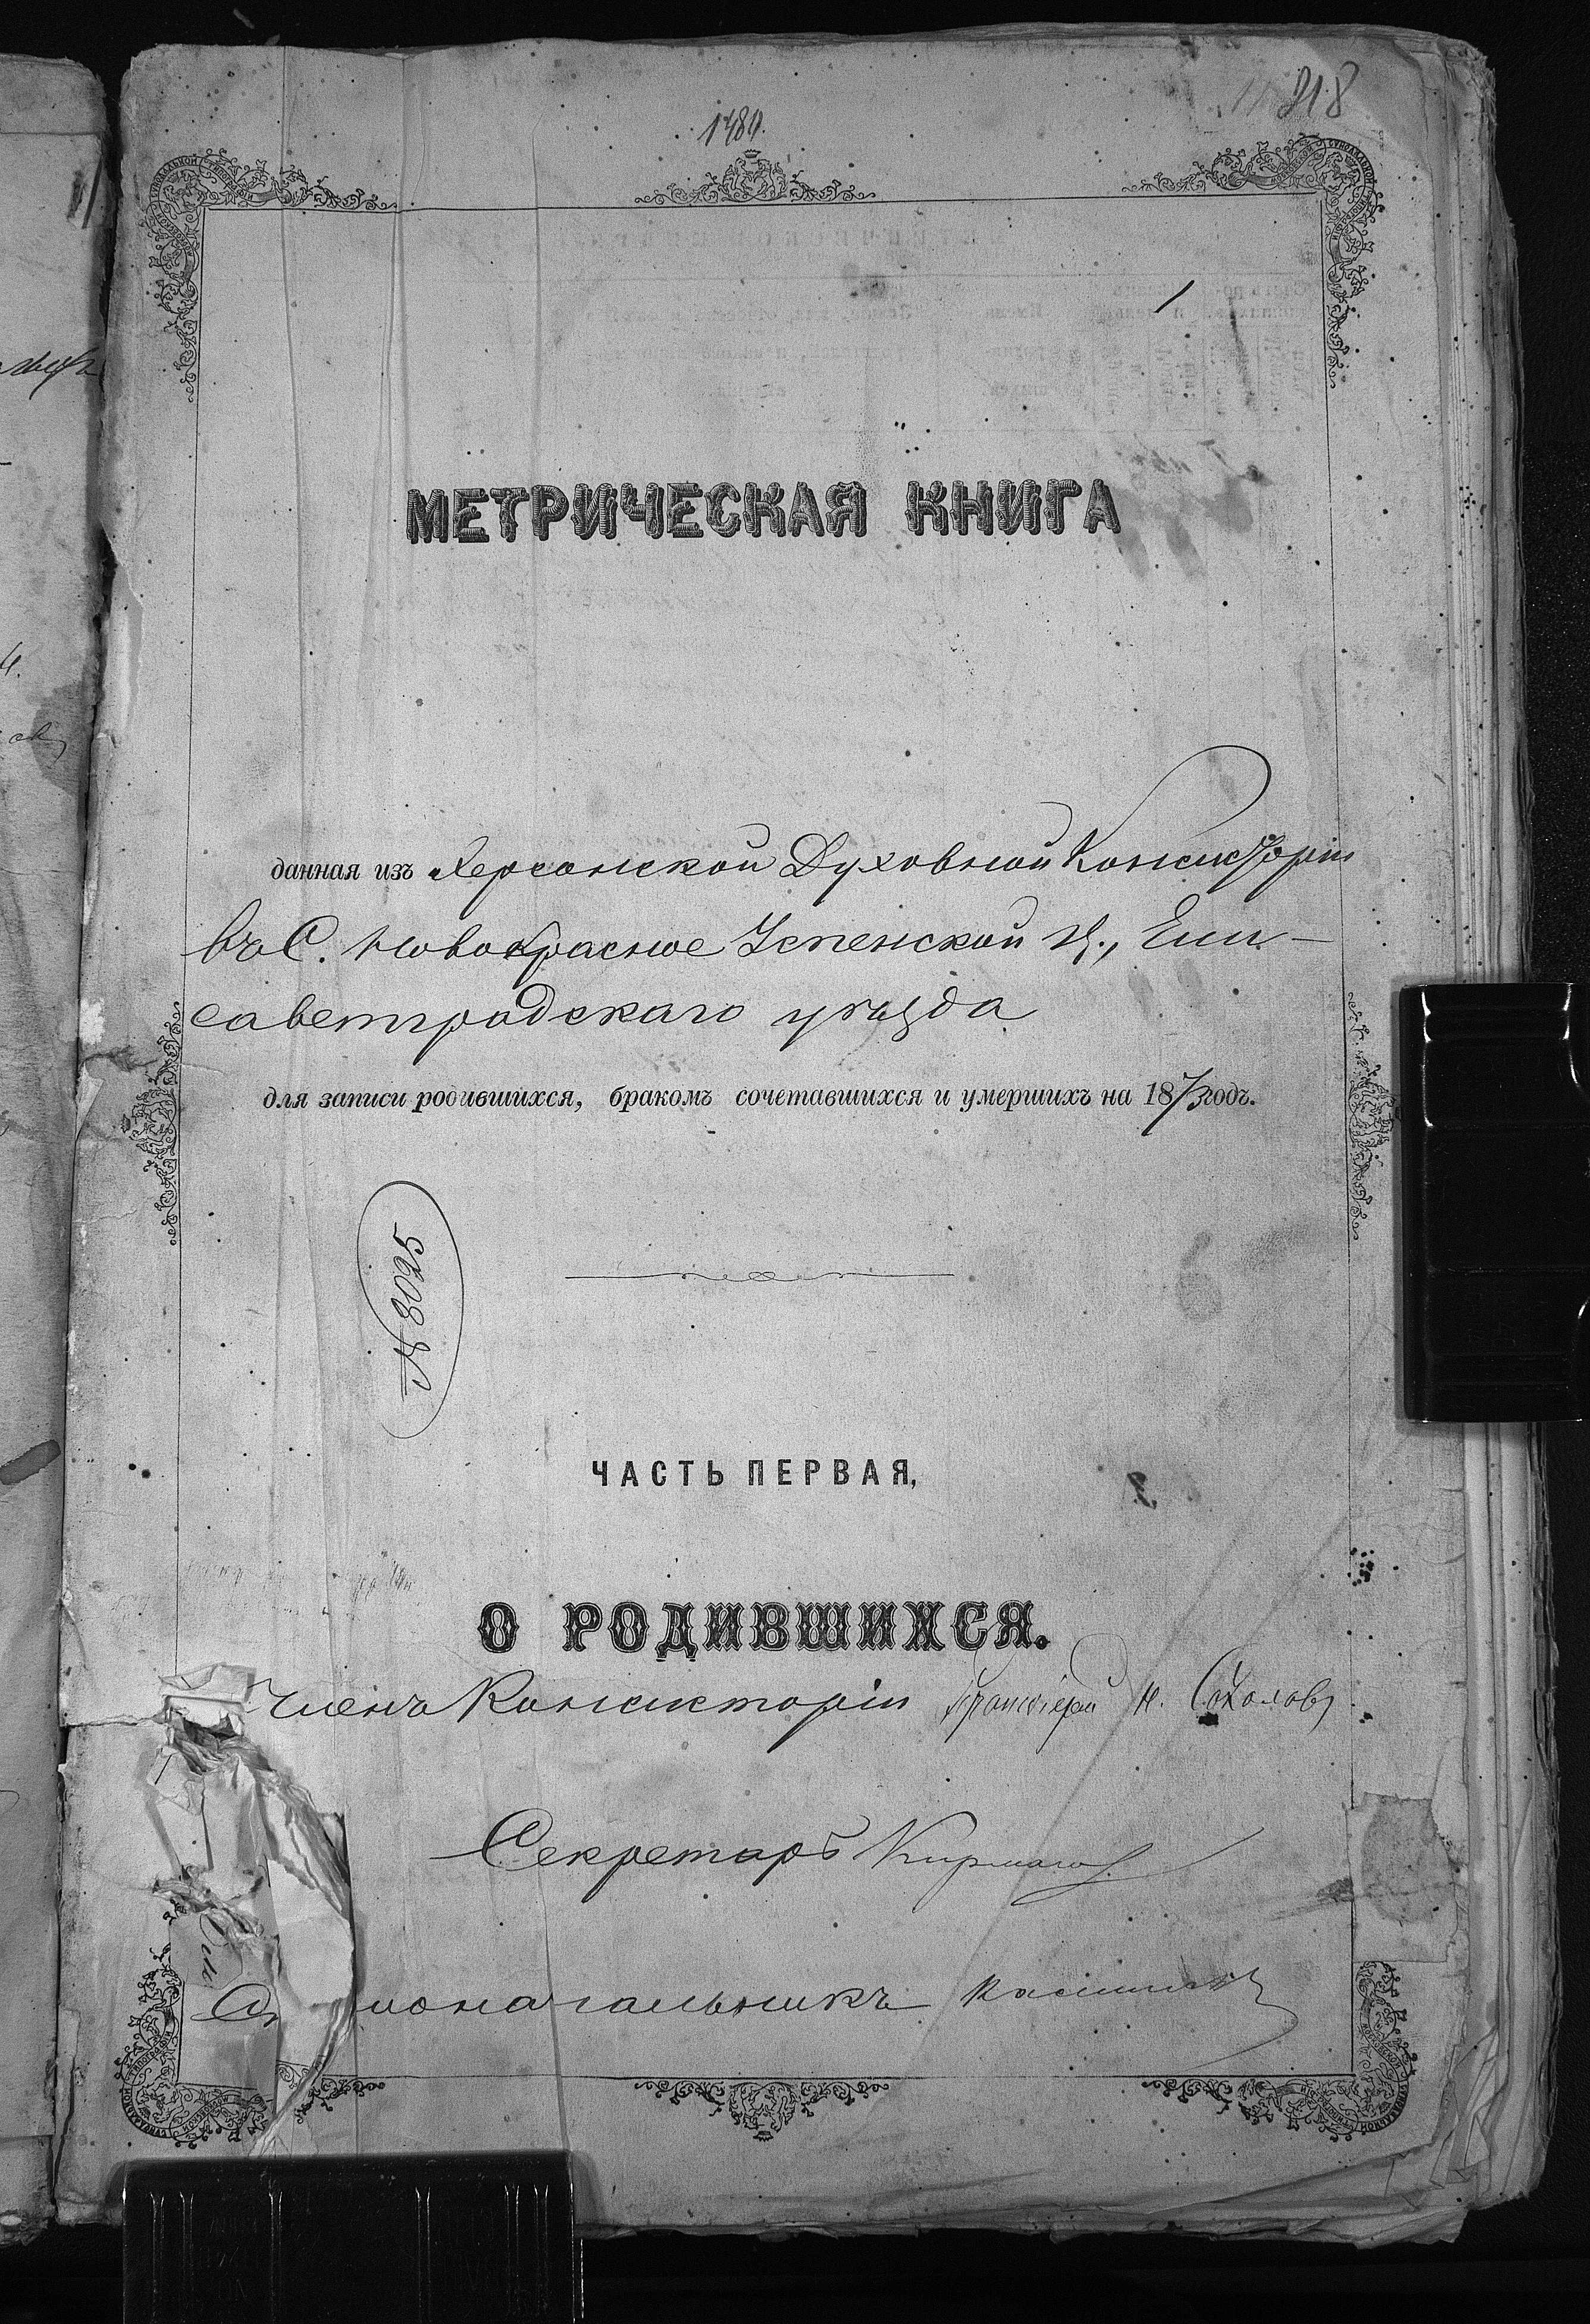 1480.
218
1
МЕТРИЧЕСКАЯ КНИГА
данная изъ Херсонской Духовной Консисторіи
въ С. Новокрасное Успенской ц., Ели-
саветградскаго уѣзда
для записи родившихся, бракомъ сочетавшихся и умершихъ на 1873 годъ.
№ 3025
ЧАСТЬ ПЕРВАЯ,
О РОДИВШИХСЯ.
Членъ Консисторіи Протоіерей Н. Соколовъ
Секретарь
оначальникъ